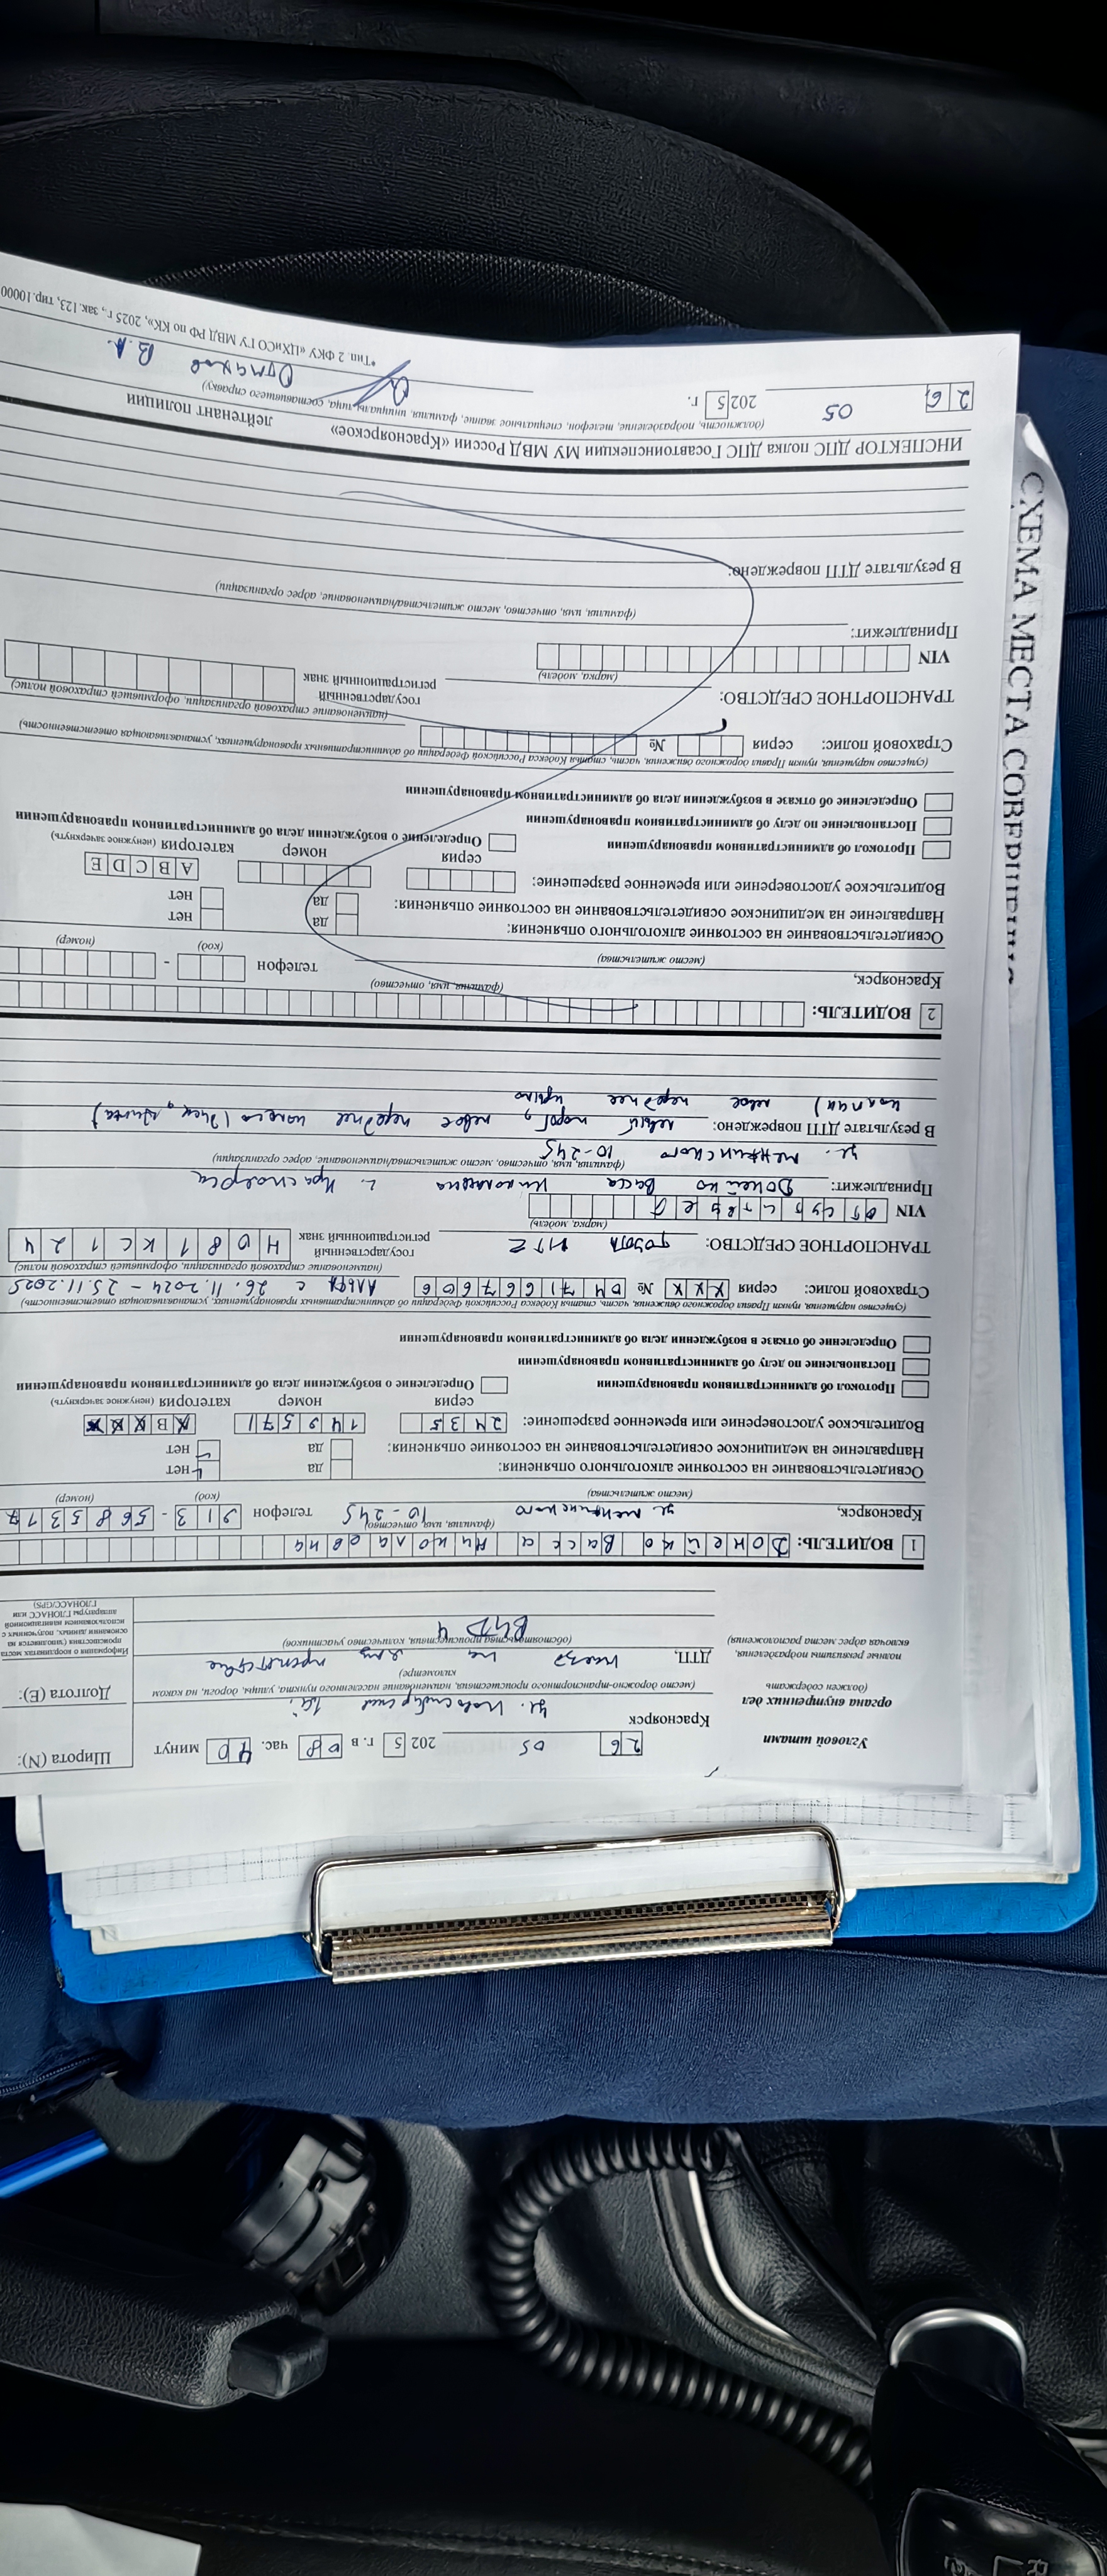 Угловой штамп
органа внутренних дел
(должен содержать
полные реквизиты подразделения,
включая адрес места расположения)
26 05 2025 г. в 08 час. 40 минут
Красноярск ул.
(место дорожно-транспортного происшествия, наименование населенного пункта, улицы, дороги, на каком
километре)
ДТП, наезд на препятствие
(обстоятельства происшествия, количество участников)
Широта (N):
Долгота (E):
Информация о координатах места
происшествия (заполняется на
основании данных, полученных с
использованием навигационной
аппаратуры ГЛОНАСС или
ГЛОНАСС/GPS)
1 ВОДИТЕЛЬ: Васса Николаевна
(фамилия, имя, отчество)
Красноярск, ул. Менжинского 10-245 телефон 913-5685317
(место жительства) (код) (номер)
Освидетельствование на состояние алкогольного опьянения: да нет
Направление на медицинское освидетельствование на состояние опьянения: да нет
Водительское удостоверение или временное разрешение: 2435
серия номер категория (ненужное зачеркнуть)
B
Протокол об административном правонарушении
Определение о возбуждении дела об административном правонарушении
Постановление по делу об административном правонарушении
Определение об отказе в возбуждении дела об административном правонарушении
(существо нарушения, пункт Правил дорожного движения, часть, статья Кодекса Российской Федерации об административных правонарушениях, устанавливающая ответственность)
Страховой полис: серия ХХХ № 0471667606 Альфа с 26.11.2024 - 25.11.2025
(наименование страховой организации, оформившей страховой полис)
ТРАНСПОРТНОЕ СРЕДСТВО: государственный
регистрационный знак Н081КС124
(марка, модель)
VIN
Принадлежит: Васса Николаевна г. Красноярск
(фамилия, имя, отчество, место жительства/наименование, адрес организации)
ул. Менжинского 10-245
В результате ДТП повреждено: левый порог, левое переднее колесо (диск,
колпак) левое переднее крыло
2 ВОДИТЕЛЬ:
(фамилия, имя, отчество)
Красноярск, телефон -
(место жительства) (код) (номер)
Освидетельствование на состояние алкогольного опьянения: да нет
Направление на медицинское освидетельствование на состояние опьянения: да нет
Водительское удостоверение или временное разрешение: A B C D E
серия номер категория (ненужное зачеркнуть)
Протокол об административном правонарушении
Определение о возбуждении дела об административном правонарушении
Постановление по делу об административном правонарушении
Определение об отказе в возбуждении дела об административном правонарушении
(существо нарушения, пункт Правил дорожного движения, часть, статья Кодекса Российской Федерации об административных правонарушениях, устанавливающая ответственность)
Страховой полис: серия №
(наименование страховой организации, оформившей страховой полис)
ТРАНСПОРТНОЕ СРЕДСТВО: государственный
регистрационный знак
(марка, модель)
VIN
Принадлежит:
(фамилия, имя, отчество, место жительства/наименование, адрес организации)
В результате ДТП повреждено:
ИНСПЕКТОР ДПС полка ДПС Госавтоинспекции МУ МВД России «Красноярское» лейтенант полиции
(должность, подразделение, телефон, специальное звание, фамилия, инициалы лица, составившего справку)
26 05 2025 г. В.А.
*Тип. 2 ФКУ «ЦХиСО ГУ МВД РФ по КК», 2025 г., зак.123, тир.10000
СХЕМА МЕСТА